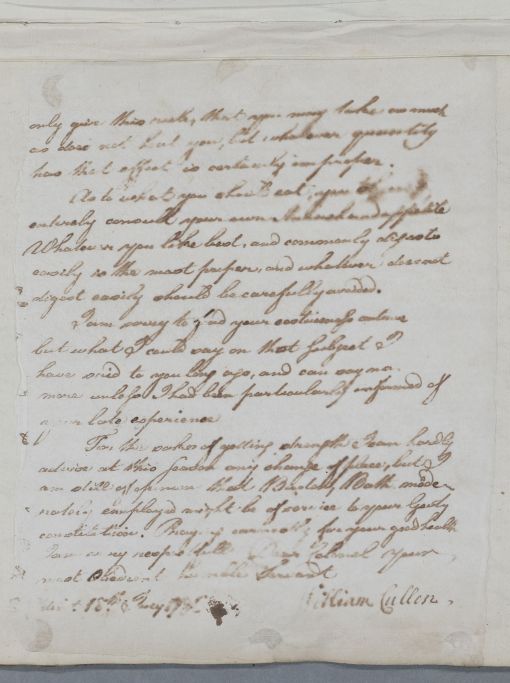 only give this rule, that you may take as much
as does not hurt you, but whatever quantity
has that effect is certainly improper.
As to what you should eat, you
entirely consult your own Stomach and appetite
Whatever you like best, and commonly digests
easily is the most proper, and whatever does not
digest easily should be carefully avoided.
I am sorry to find your costiveness
but what I could say on that Subject I
have said to you long ago, and can say no
more unless I had been particularly informed of
your late experience
For the sake of getting strength I can hardly
advise at this season any change of place, but I
am still of opinion that Buxton, Bath
employed might be of service to your Gouty
constitution. Praying earnestly for your good health
I am Dear Colonel your
most obedient humble Servant
15th
William Cullen.